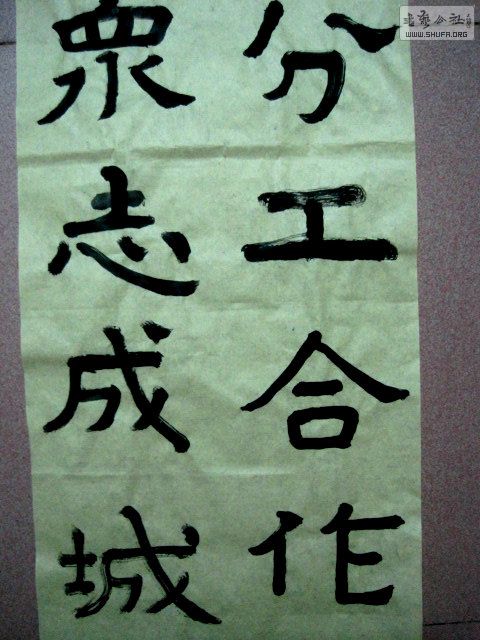 分工合作
眾志成城
書藝公社
WWW.SHUFA.ORG